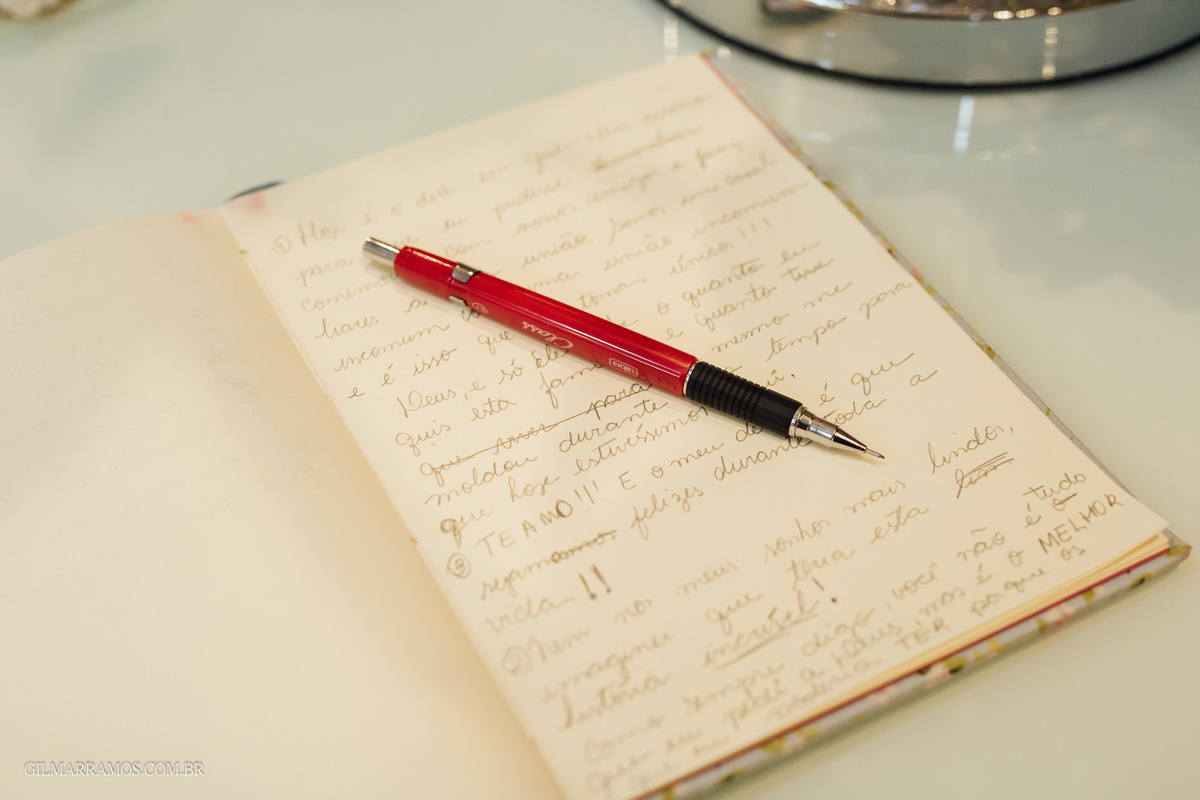 ① Hoje é o dia em que
para que eu pudesse
comemorar com nossos amigos e fami
liares a união. Somos um casal
incomum uma união incomum
e é isso que torna único!!!
Deus, e só Ele o quanto eu
quis esta família e quanto tive
que para mesmo me
moldou durante tempo para
que hoje estivéssemos aqui.
TE AMO!!! E o meu de é que
③ sejamos felizes durante toda a
vida!!
② Nem nos meus sonhos mais lindos,
imaginei que teria esta
história incrível!
Como sempre digo, você não é tudo
que eu pedi a Deus, mas é o MELHOR
que eu poderia TER porque os
Class
tilibra
GILMARRAMOS.COM.BR